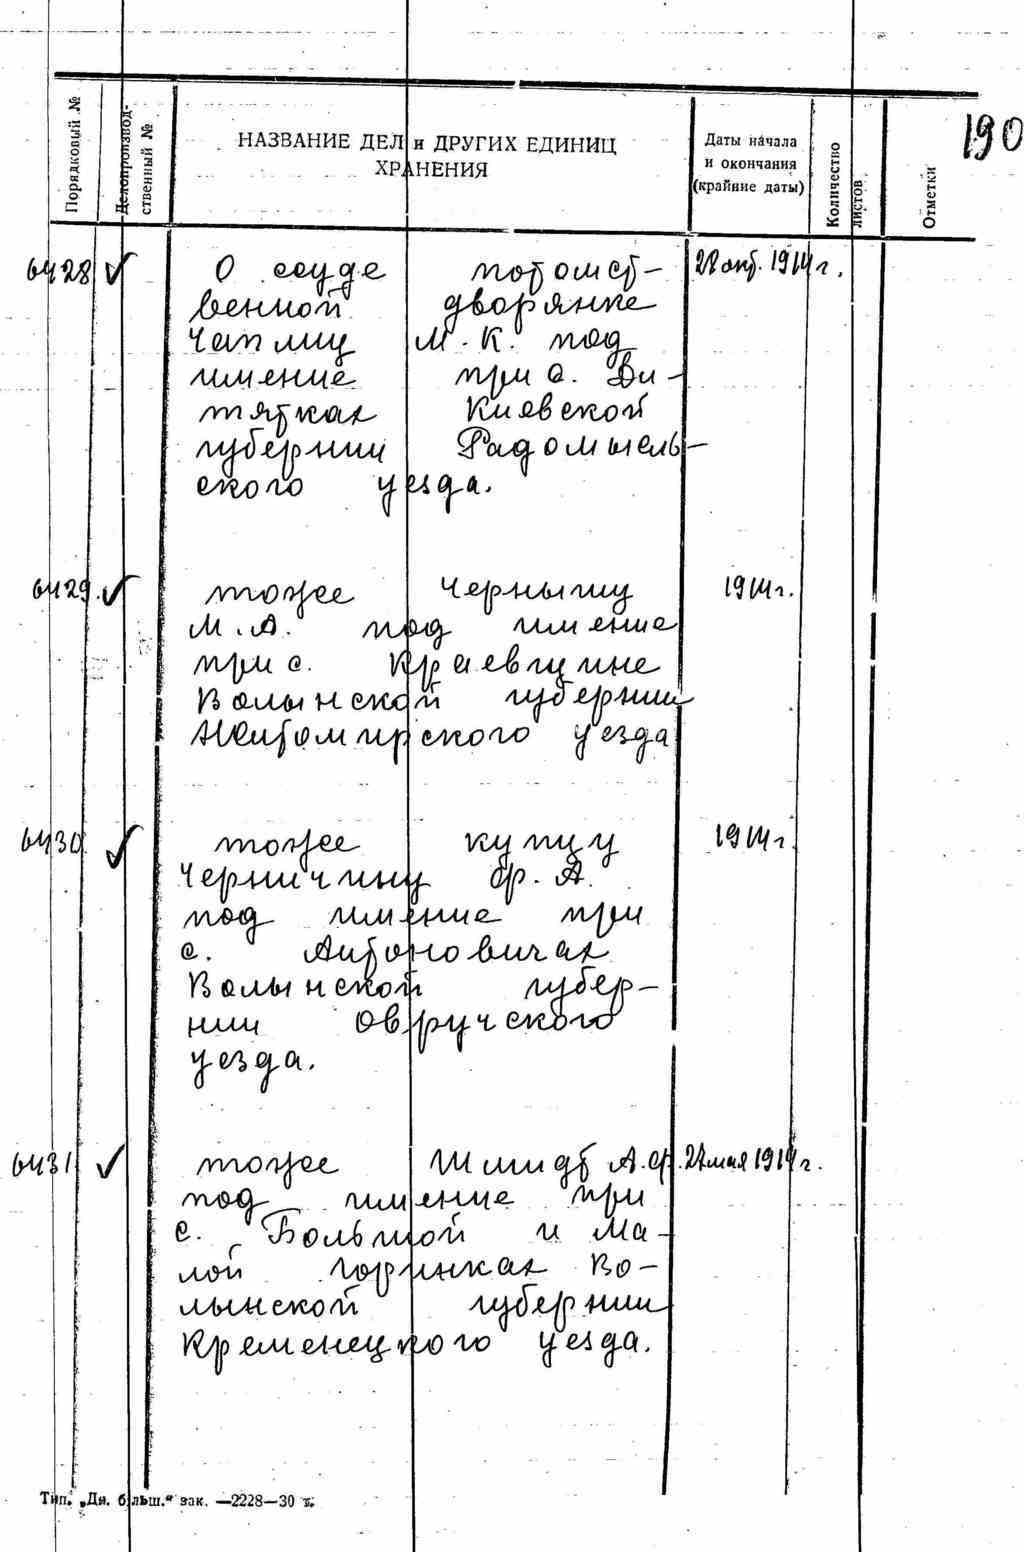 190
Порядковый №
Делопроизвод-
ственный №
НАЗВАНИЕ ДЕЛ и ДРУГИХ ЕДИНИЦ
ХРАНЕНИЯ
Даты начала
и окончания
(крайние даты)
Количество
листов
Отметки
6428 ✓ О ссуде потомст- 28 окт. 1914 г.
венной дворянке
Чаплиц М. К. под
имение при с. Ви-
тятках Киевской
губернии Радомысль-
ского уезда.
6429. ✓ тоже Чернышу 1914 г.
М. А. под имение
при с. Краевщине
Волынской губернии
Житомирского уезда
6430 ✓ тоже купцу 1914 г.
Черничину Ф. А.
под имение при
с. Антоновичах
Волынской губер-
нии Овручского
уезда.
6431 ✓ тоже Шмидт А. Ф. 27 мая 1914 г.
под имение при
с. Большой и Ма-
лой Горинках Во-
лынской губернии
Кременецкого уезда.
Тип. „Дн. більш.“ зак. —2228—30 т.